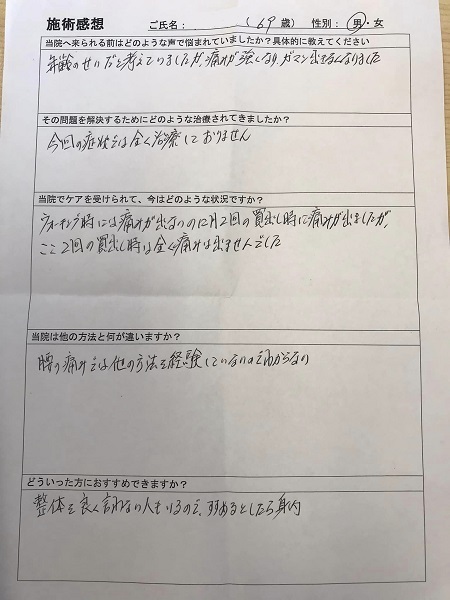 施術感想 ご氏名： （69歳） 性別：男・女
当院へ来られる前はどのような声で悩まれていましたか？具体的に教えてください
年齢のせいだと考えていましたが、痛みが強くなり、ガマン出来なくなりました
その問題を解決するためにどのような治療されてきましたか？
今回の症状では全く治療しておりません
当院でケアを受けられて、今はどのような状況ですか？
ウォーキング時には痛みが出ないのに月2回の買出し時に痛みが出ましたが、
ここ2回の買出し時は全く痛みは出ませんでした
当院は他の方法と何が違いますか？
腰の痛みでは他の方法を経験していないのでわからない
どういった方におすすめできますか？
整体を良く言わない人もいるので、すすめるとしたら身内